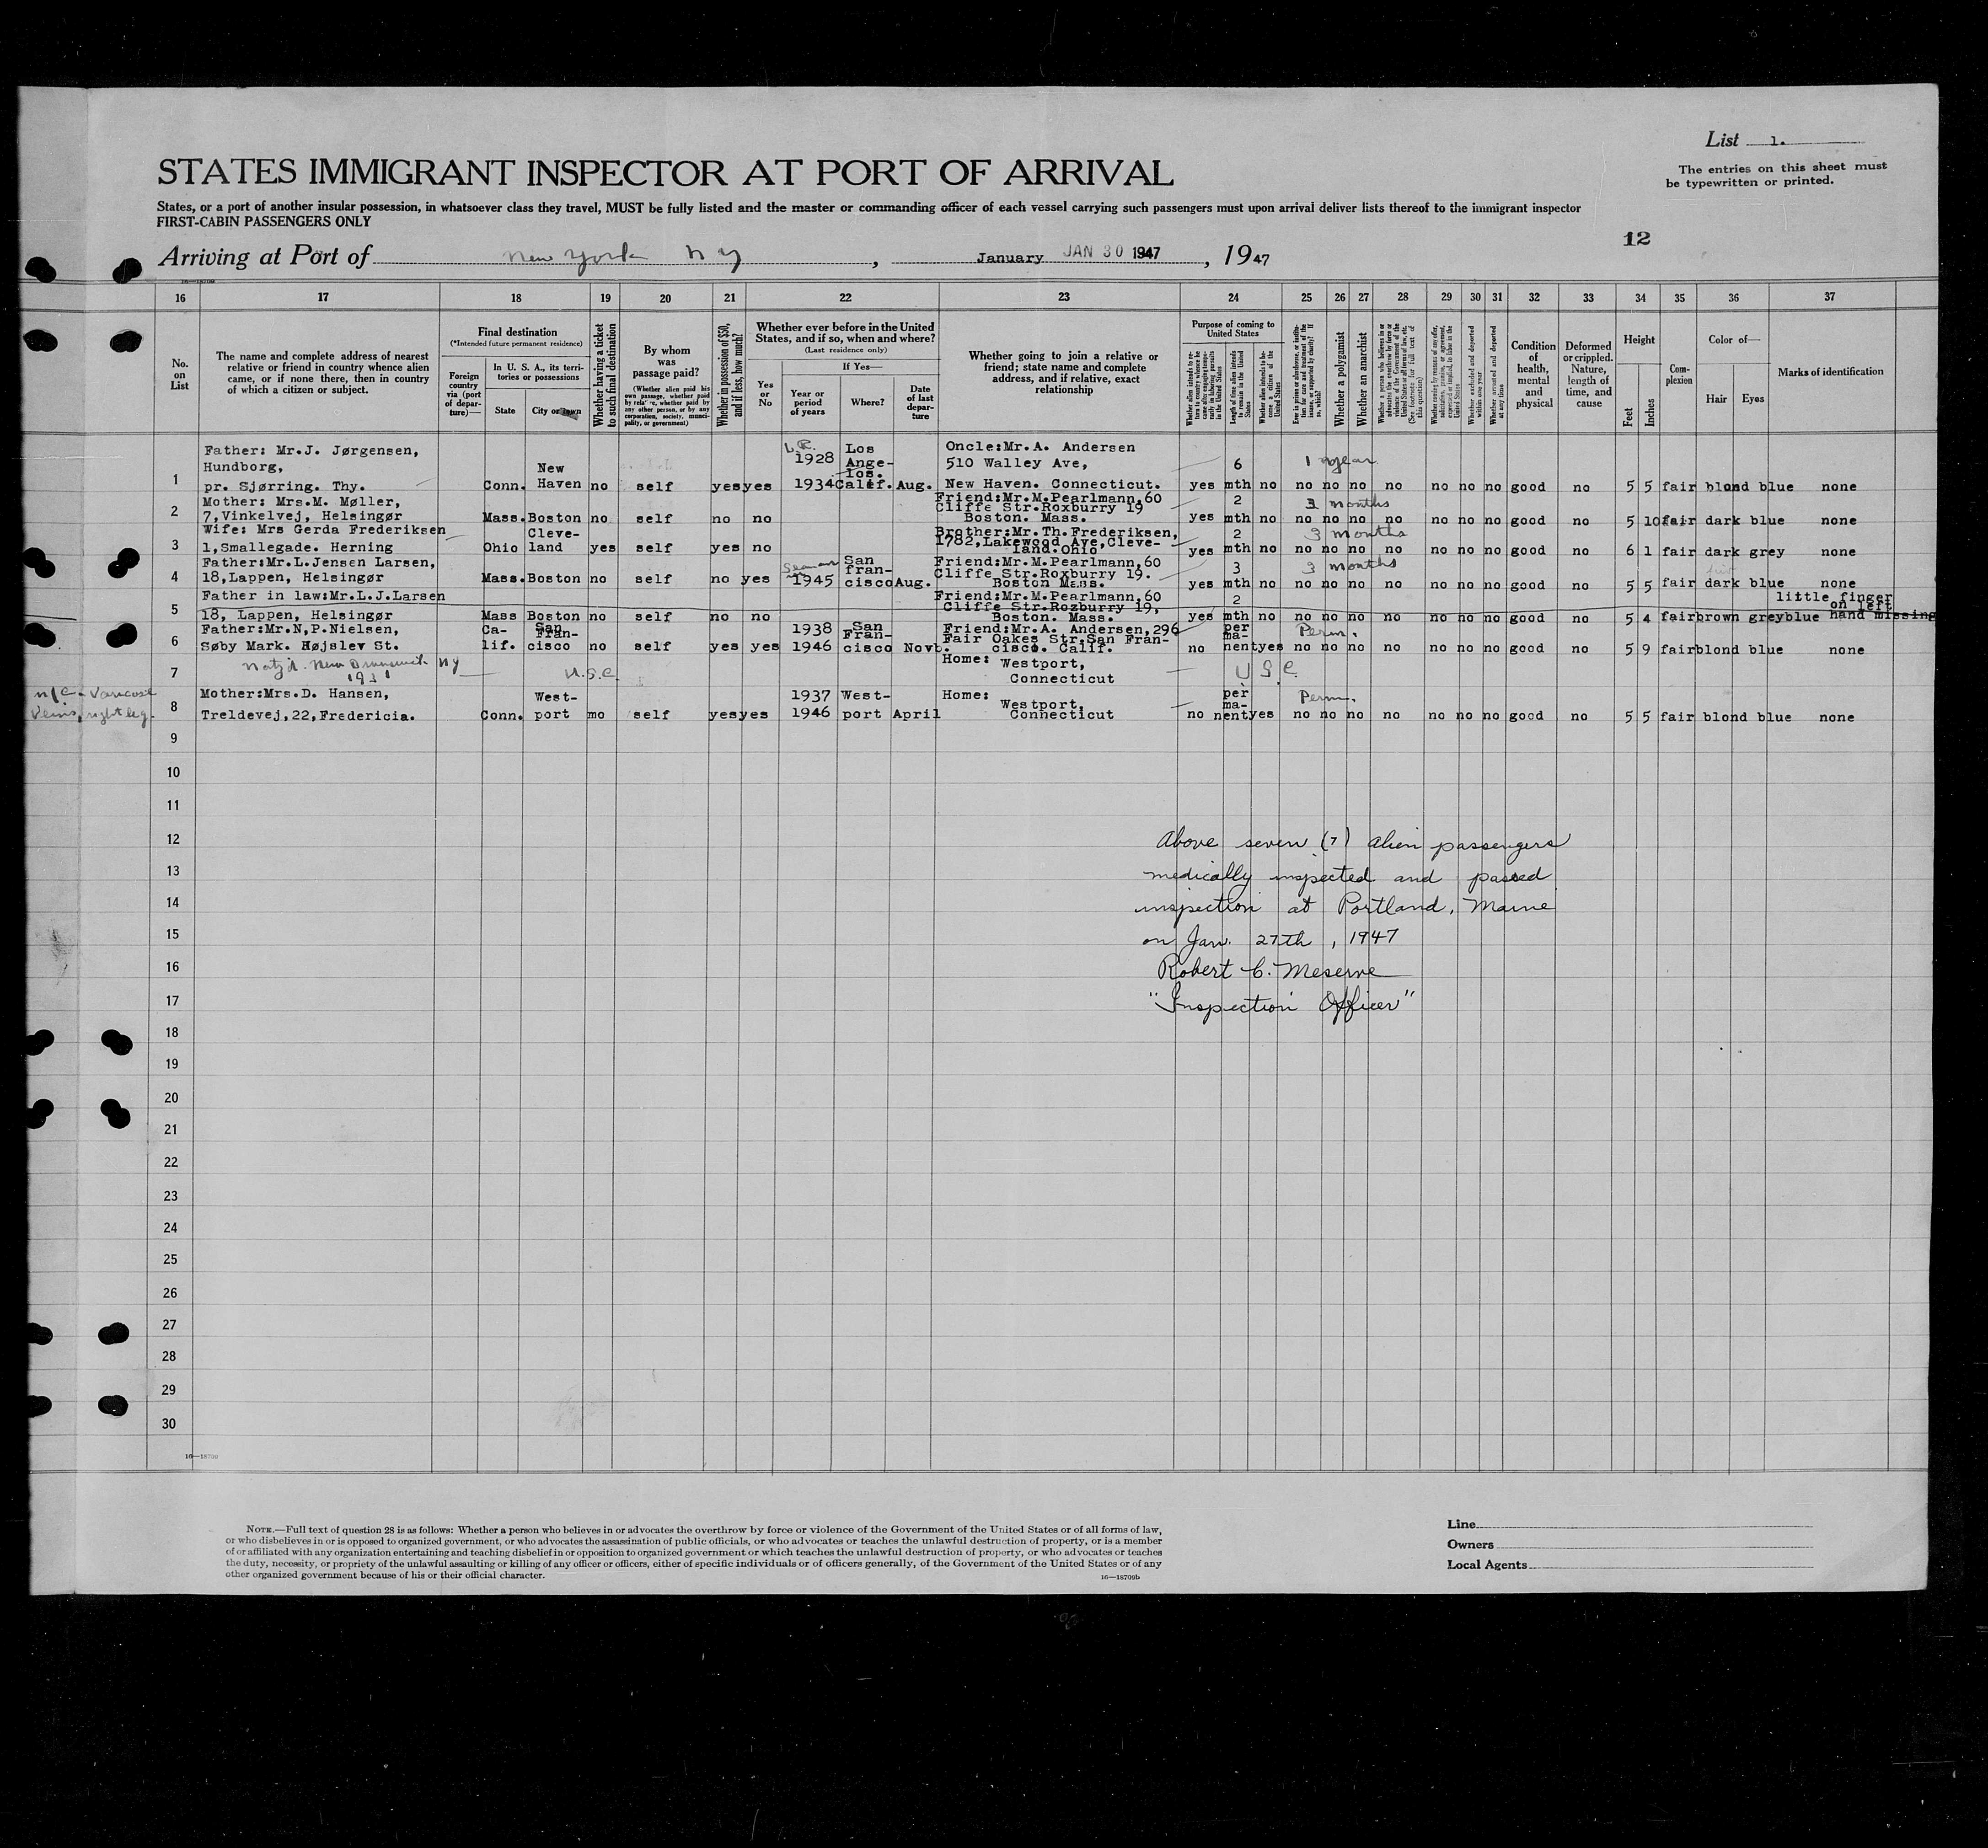 List 1.
The entries on this sheet must
be typewritten or printed.
STATES IMMIGRANT INSPECTOR AT PORT OF ARRIVAL
States, or a port of another insular possession, in whatsoever class they travel, MUST be fully listed and the master or commanding officer of each vessel carrying such passengers must upon arrival deliver lists thereof to the immigrant inspector
FIRST-CABIN PASSENGERS ONLY
12
Arriving at Port of New York N Y, January JAN 30 1947, 1947
16—18709
16 17 18 19 20 21 22 23 24 25 26 27 28 29 30 31 32 33 34 35 36 37
No. on List
The name and complete address of nearest relative or friend in country whence alien came, or if none there, then in country of which a citizen or subject.
Final destination
(*Intended future permanent residence)
Foreign country via (port of departure)—
In U. S. A., its territories or possessions
State
City or town
Whether having a ticket to such final destination
By whom was passage paid?
(Whether alien paid his own passage, whether paid by relative, whether paid by any other person, or by any corporation, society, municipality, or government)
Whether in possession of $50, and if less, how much?
Whether ever before in the United States, and if so, when and where?
(Last residence only)
Yes or No
If Yes—
Year or period of years
Where?
Date of last departure
Whether going to join a relative or friend; state name and complete address, and if relative, exact relationship
Purpose of coming to United States
Length of time alien intends to remain in the United States
Whether alien intends to become a citizen of the United States
Whether a polygamist
Whether an anarchist
Whether excluded and deported within one year
Whether arrested and deported at any time
Condition of health, mental and physical
Deformed or crippled. Nature, length of time, and cause
Height
Feet
Inches
Complexion
Color of—
Hair
Eyes
Marks of identification
1 Father: Mr.J. Jørgensen, Hundborg, pr. Sjørring. Thy. Conn. New Haven no self yes yes 1928 1934 Los Ange- los. Calif. Aug. Oncle:Mr.A. Andersen 510 Walley Ave, New Haven. Connecticut. yes 6 mth no 1 year no no no no no no no good no 5 5 fair blond blue none
2 Mother: Mrs.M. Møller, 7,Vinkelvej, Helsingør Mass. Boston no self no no Friend:Mr.M.Pearlmann,60 Cliffe Str.Roxburry 19 Boston. Mass. yes 2 mth no 3 months no no no no no no no good no 5 10 fair dark blue none
3 Wife: Mrs Gerda Frederiksen 1,Smallegade. Herning Ohio Cleve- land yes self yes no Brother:Mr.Th.Frederiksen, 1782,Lakewood Ave,Cleve- land.Ohio yes 2 mth no 3 months no no no no no no no good no 6 1 fair dark grey none
4 Father:Mr.L.Jensen Larsen, 18,Lappen, Helsingør Mass. Boston no self no yes Seaman 1945 San fran- cisco Aug. Friend:Mr.M.Pearlmann,60 Cliffe Str.Roxburry 19. Boston Mass. yes 3 mth no 3 months no no no no no no no good no 5 5 fair dark blue none
5 Father in law:Mr.L.J.Larsen 18, Lappen, Helsingør Mass Boston no self no no Friend:Mr.M.Pearlmann,60 Cliffe Str.Rozburry 19, Boston. Mass. yes 2 mth no no no no no no no no good no 5 4 fair brown grey blue little finger on left hand missing
6 Father:Mr.N,P.Nielsen, Søby Mark. Højslev St. Ca- lif. San Fran- cisco no self yes yes 1938 1946 San Fran- cisco Novb. Friend:Mr.A. Andersen,296 Fair Oakes Str,San Fran- cisco. Calif. no per ma- nent yes Perm. no no no no no no no good no 5 9 fair blond blue none
7 Natz'd. New Brunswick NY 1931 U.S.C. Home: Westport, Connecticut U S C
n/c - Varicose Veins, right leg.
8 Mother:Mrs.D. Hansen, Treldevej,22,Fredericia. Conn. West- port mo self yes yes 1937 1946 West- port April Home: Westport, Connecticut no per ma- nent yes Perm. no no no no no no no good no 5 5 fair blond blue none
9
10
11
12 Above seven (7) alien passengers
13 medically inspected and passed
14 inspection at Portland, Maine
15 on Jan. 27th, 1947
16 Robert C. Meserve
17 "Inspection Officer"
18
19
20
21
22
23
24
25
26
27
28
29
30
16—18709
NOTE.—Full text of question 28 is as follows: Whether a person who believes in or advocates the overthrow by force or violence of the Government of the United States or of all forms of law,
or who disbelieves in or is opposed to organized government, or who advocates the assassination of public officials, or who advocates or teaches the unlawful destruction of property, or is a member
of or affiliated with any organization entertaining and teaching disbelief in or opposition to organized government or which teaches the unlawful destruction of property, or who advocates or teaches
the duty, necessity, or propriety of the unlawful assaulting or killing of any officer or officers, either of specific individuals or of officers generally, of the Government of the United States or of any
other organized government because of his or their official character.
16—18709b
Line
Owners
Local Agents